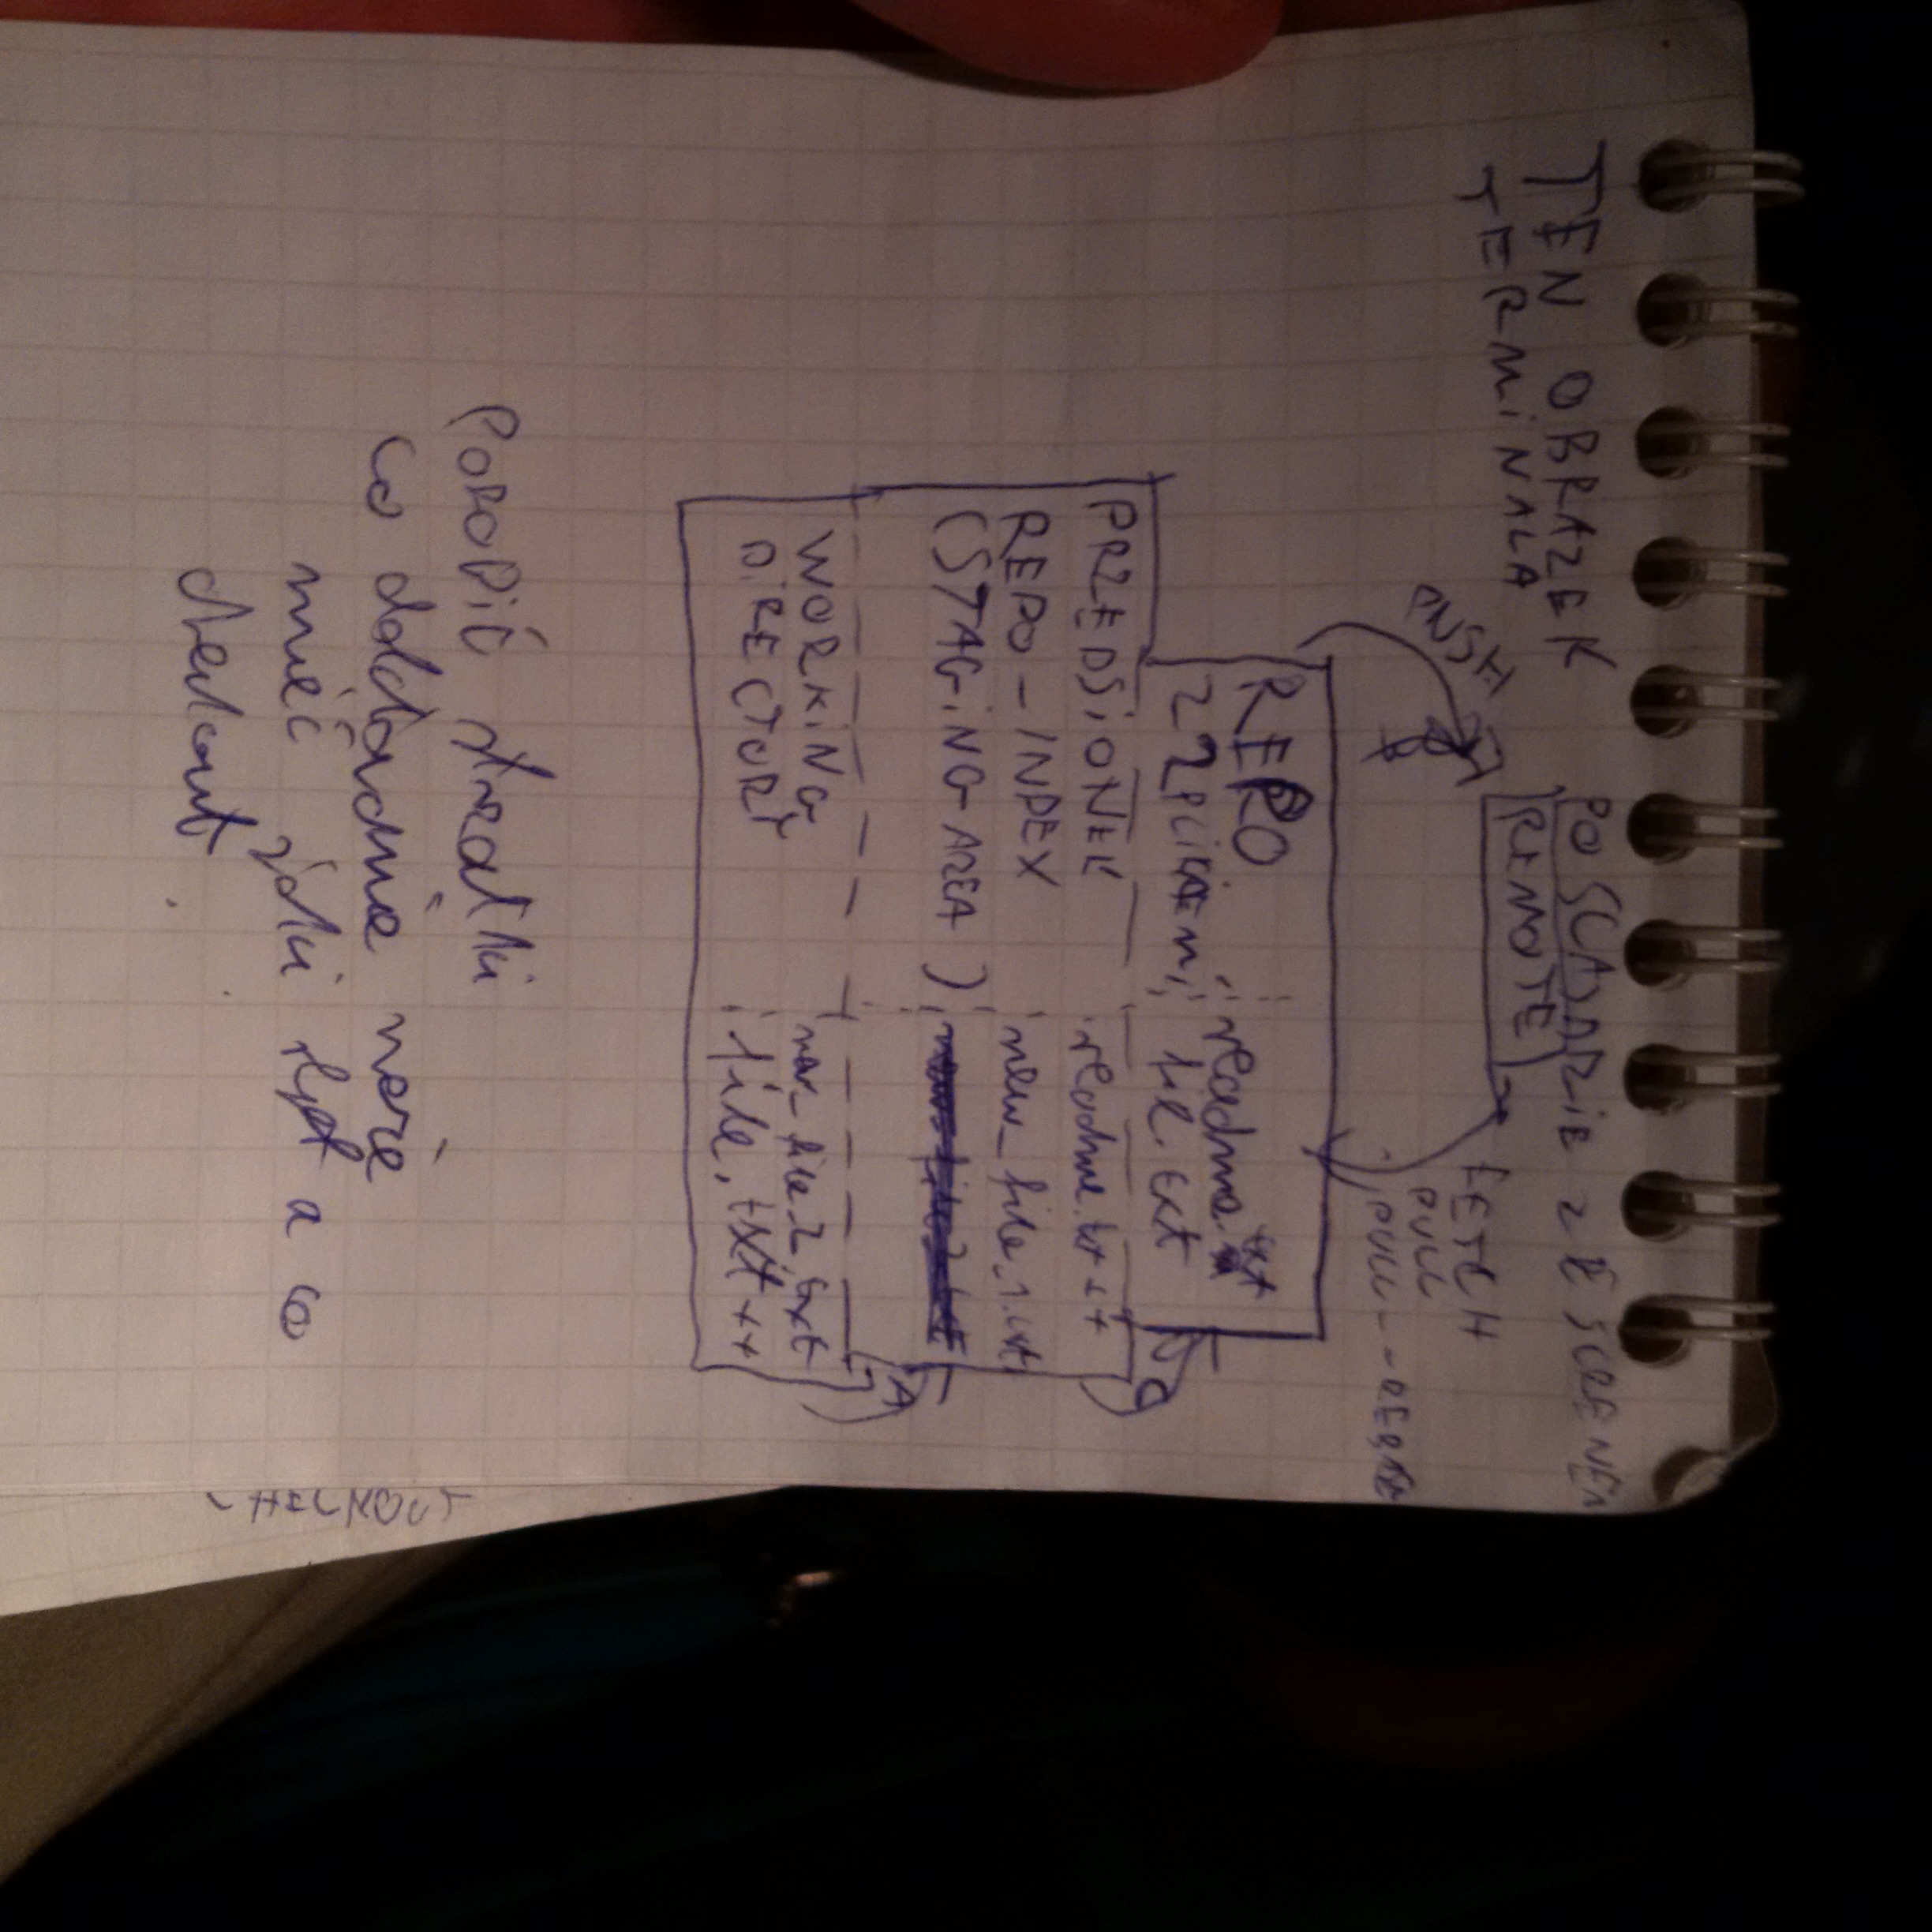 TEN OBRAZEK PO SCAJDZIE ZE SCREENEM
TERMINALA
REMOTE
PUSH
FETCH
PULL
PULL --REBASE
REPO
Z 2 PLIKAMI
readme.txt
file.txt
PRZEDSIONEK
REPO - INDEX
(STAGING AREA)
readme.txt ++
new_file_1.txt
WORKING
DIRECTORY
new_file_2.txt
file.txt ++
POROBIĆ strzałki
co dokładnie może
mieć jaki a co
checkout.
CHECKOUT